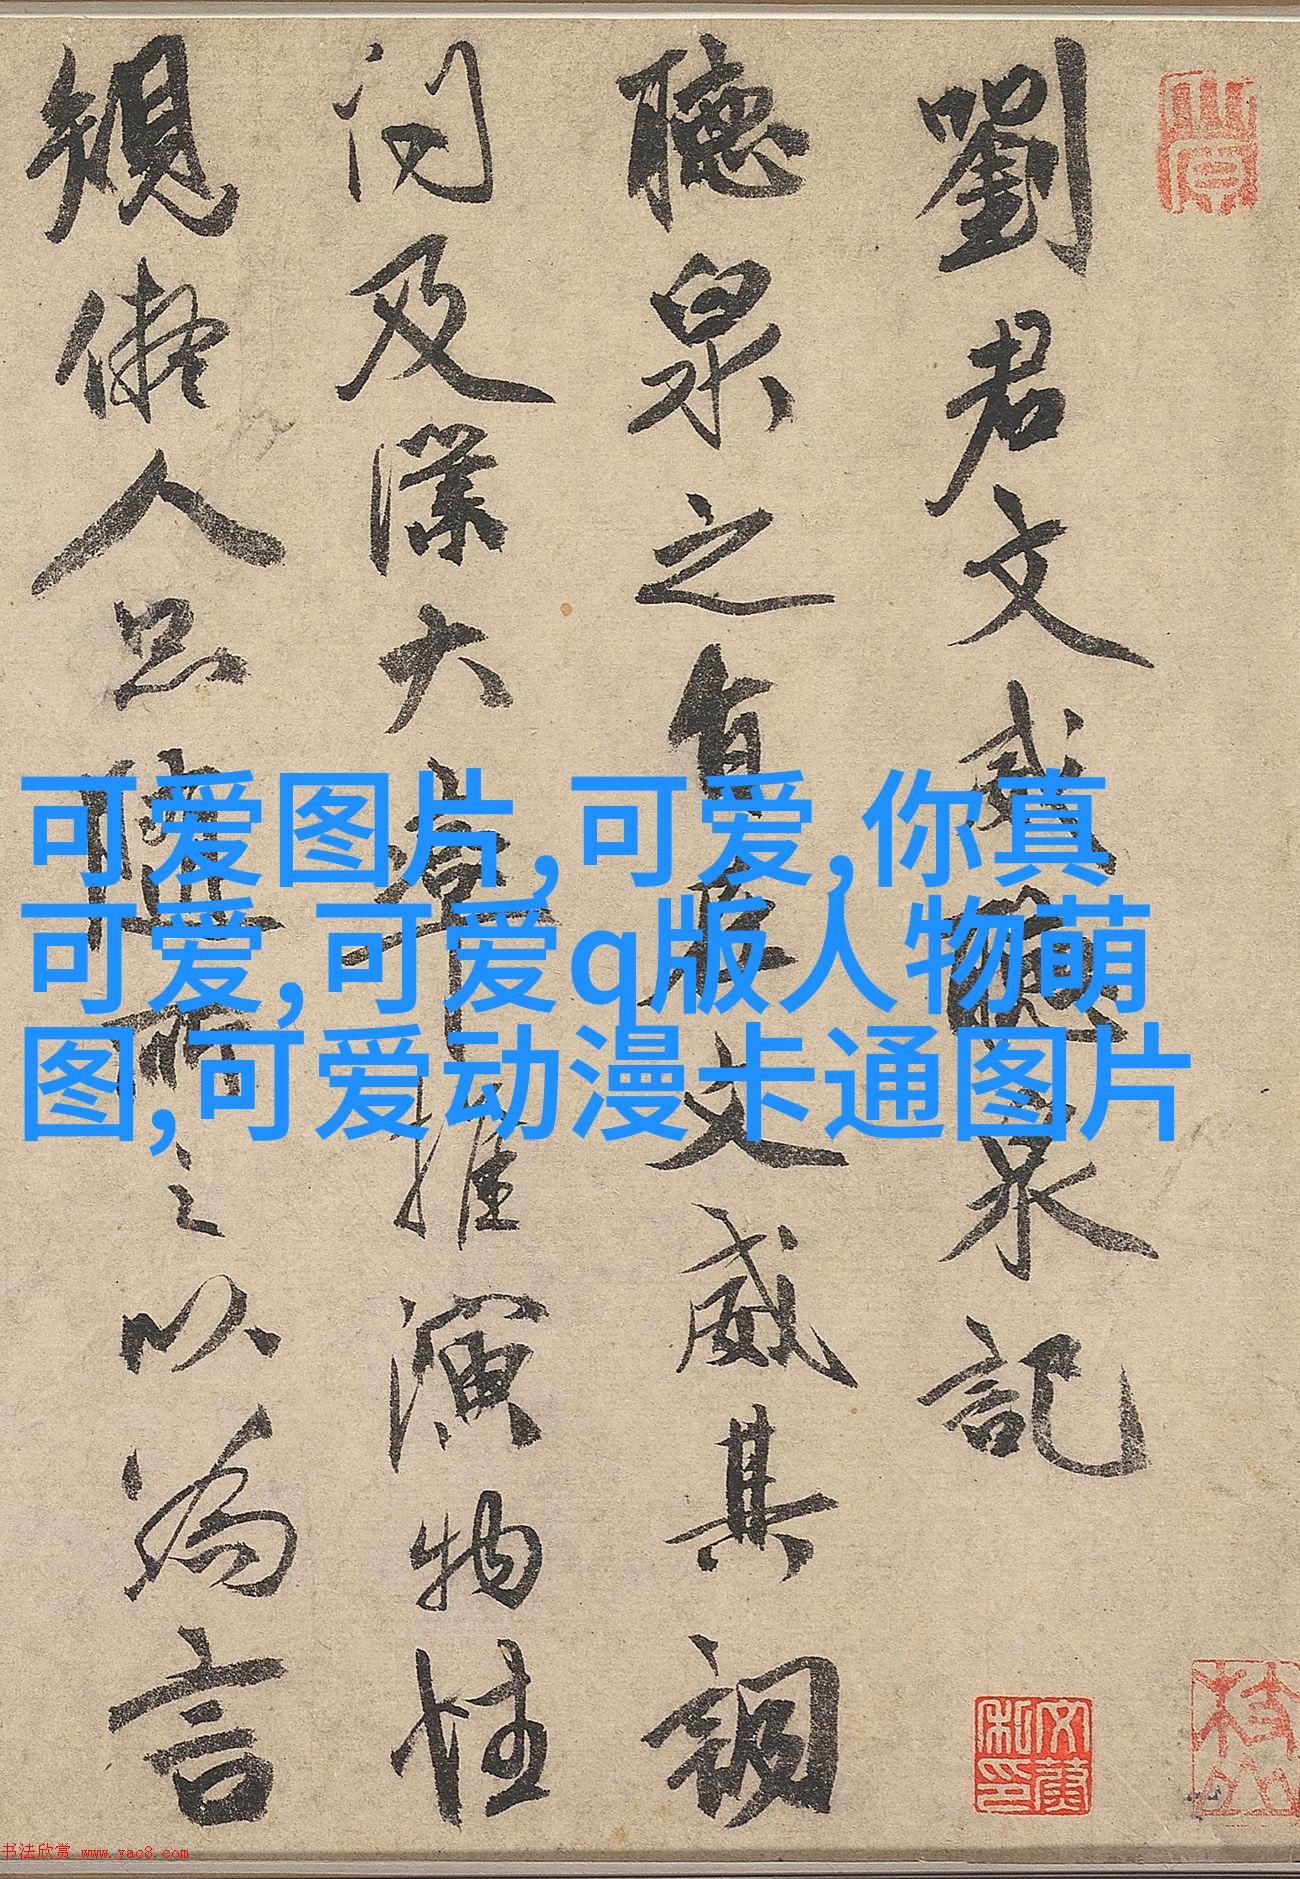 劉君文威聽泉記
聽泉之文威其調
問及大推演物性
規儗人品所之以為言
可爱图片,可爱,你真
可爱,可爱q版人物萌
图,可爱动漫卡通图片
书法欣赏 www.yac8.com